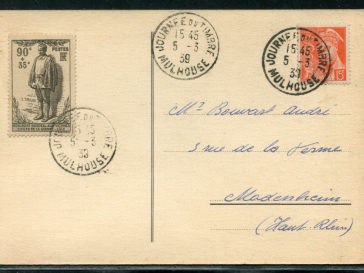 JOURNEE DU TIMBRE
15 45
5 - 3
39
MULHOUSE
JOURNEE DU TIMBRE
15 45
5 - 3
39
MULHOUSE
90c
+35c
POSTES
15
JOURNEE DU TIMBRE
15 45
5 - 3
39
MULHOUSE
Mr Bouvart André
5 rue de la Ferme
Modenheim
(Haut-Rhin)